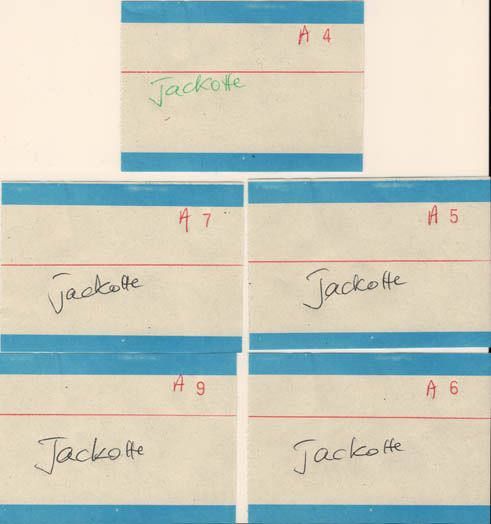 A 4
Jackotte
A 7
Jackotte
A 5
Jackotte
A 9
Jackotte
A 6
Jackotte